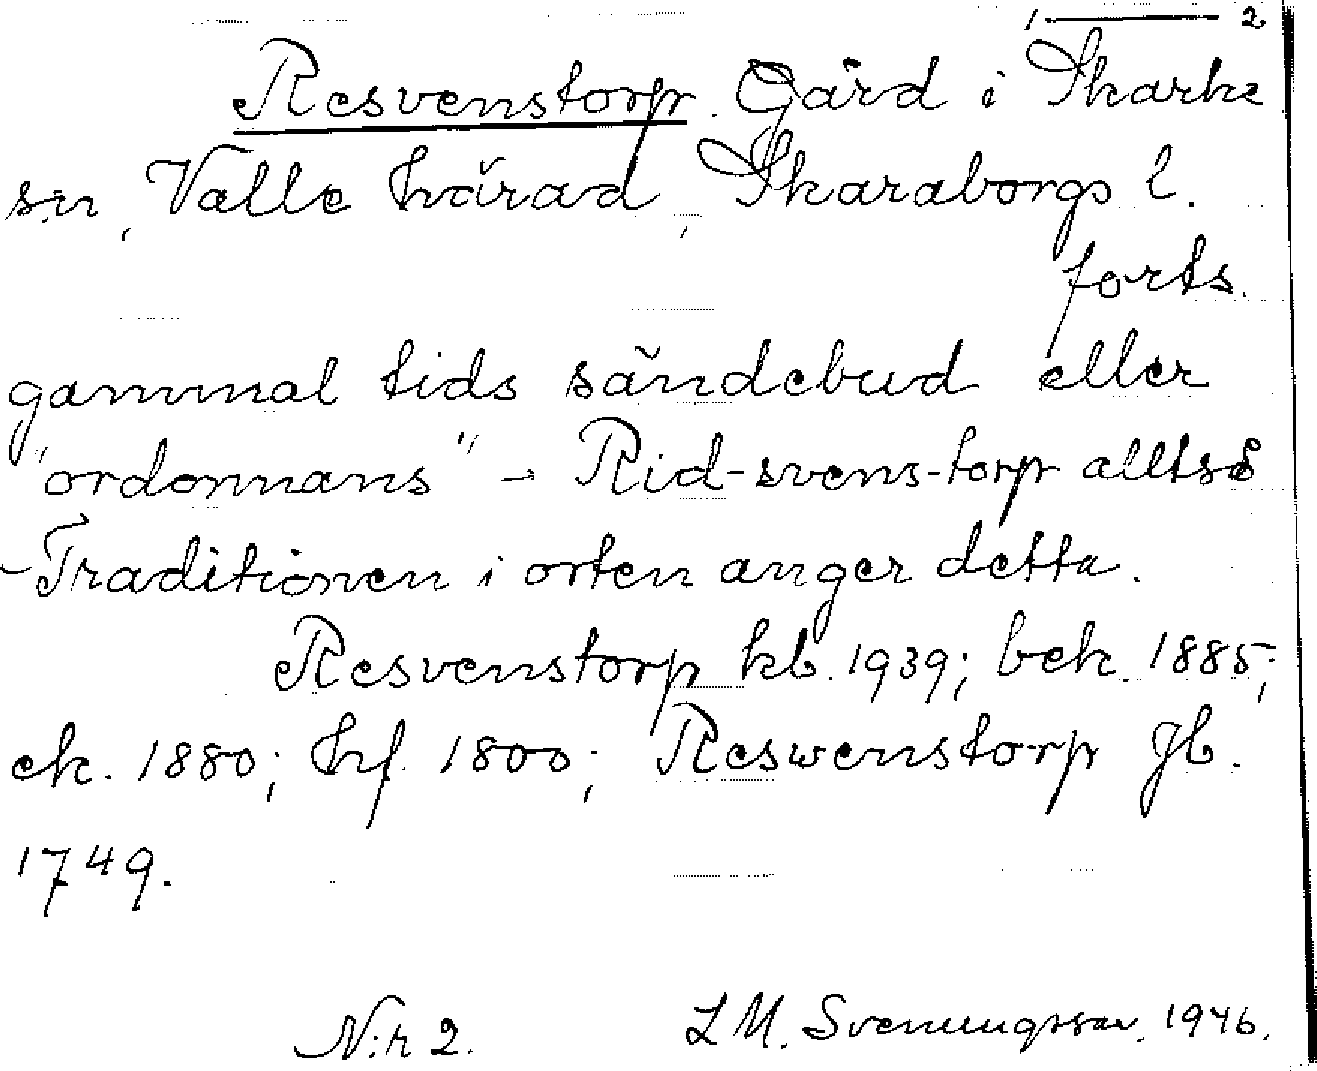 1 — 2
Resvenstorp. Gård i Skarke
s:n, Valle härad, Skaraborgs l.
forts.
gammal tids sändebud eller
"ordonnans" - Rid-svens-torp alltså
- Traditionen i orten anger detta.
Resvenstorp kb. 1939; bek. 1885;
ek. 1880; hf. 1800; Reswenstorp Jb.
1749.
N:r 2. L M. Svenungsson. 1946.